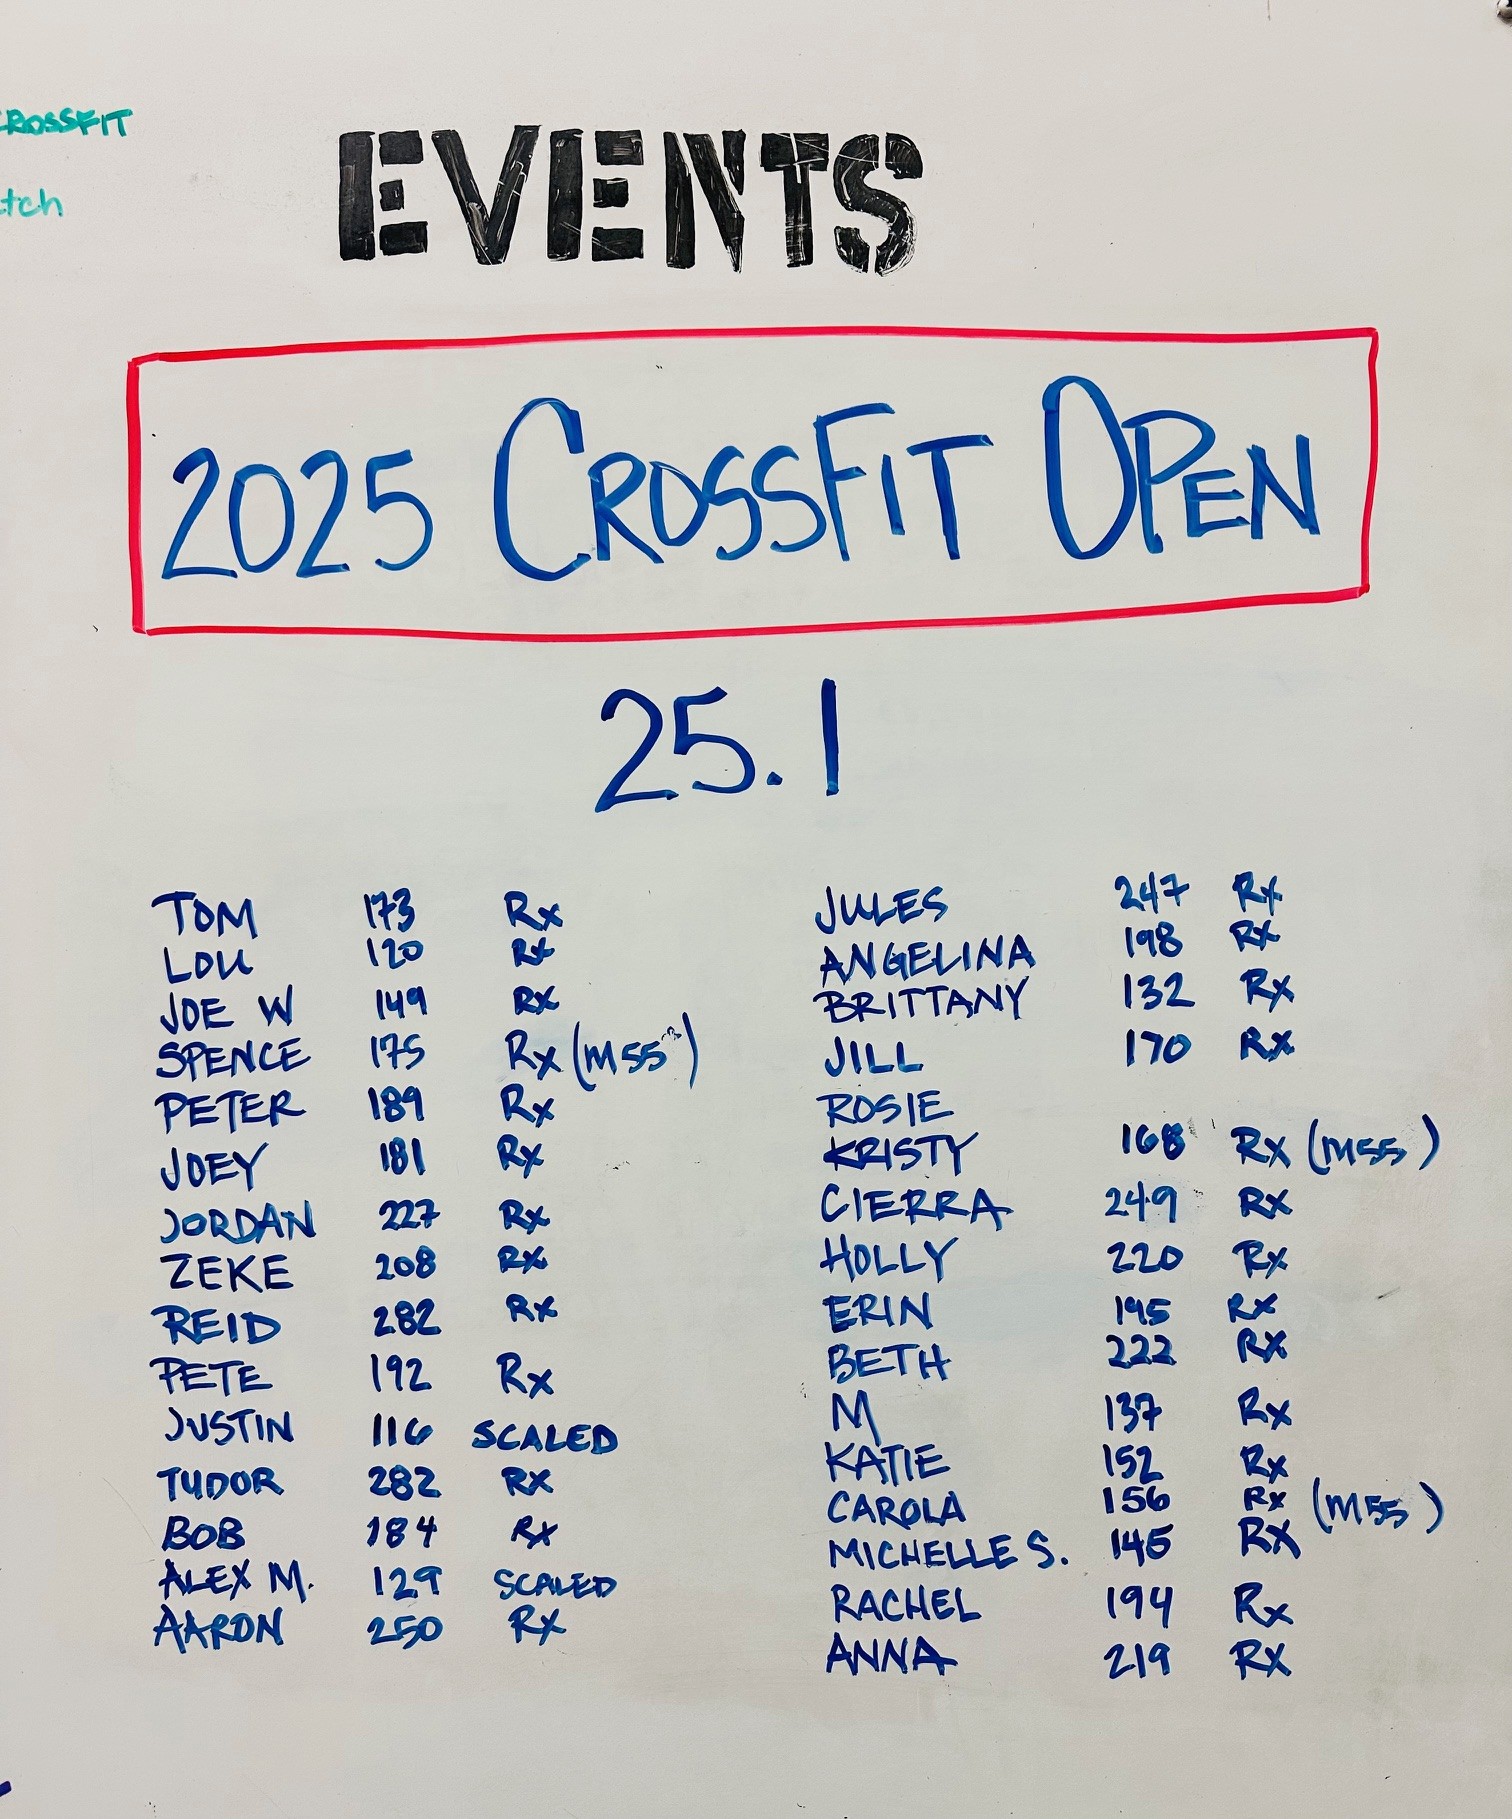 CROSSFIT
tch
EVENTS
2025 CROSSFIT OPEN
25.1
TOM 173 Rx
LOU 120 Rx
JOE W 149 Rx
SPENCE 175 Rx (M55)
PETER 189 Rx
JOEY 181 Rx
JORDAN 227 Rx
ZEKE 208 Rx
REID 282 Rx
PETE 192 Rx
JUSTIN 116 SCALED
TUDOR 282 Rx
BOB 184 Rx
ALEX M. 129 SCALED
AARON 250 Rx
JULES 247 Rx
ANGELINA 198 Rx
BRITTANY 132 Rx
JILL 170 Rx
ROSIE
KRISTY 168 Rx (M55)
CIERRA 249 Rx
HOLLY 220 Rx
ERIN 195 Rx
BETH 222 Rx
M 137 Rx
KATIE 152 Rx
CAROLA 156 Rx (M55)
MICHELLE S. 145 Rx
RACHEL 194 Rx
ANNA 219 Rx